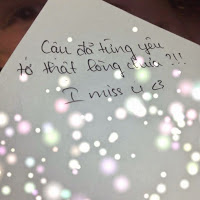 Cậu đã từng yêu
tớ thật lòng chưa ?!!
I miss u <3